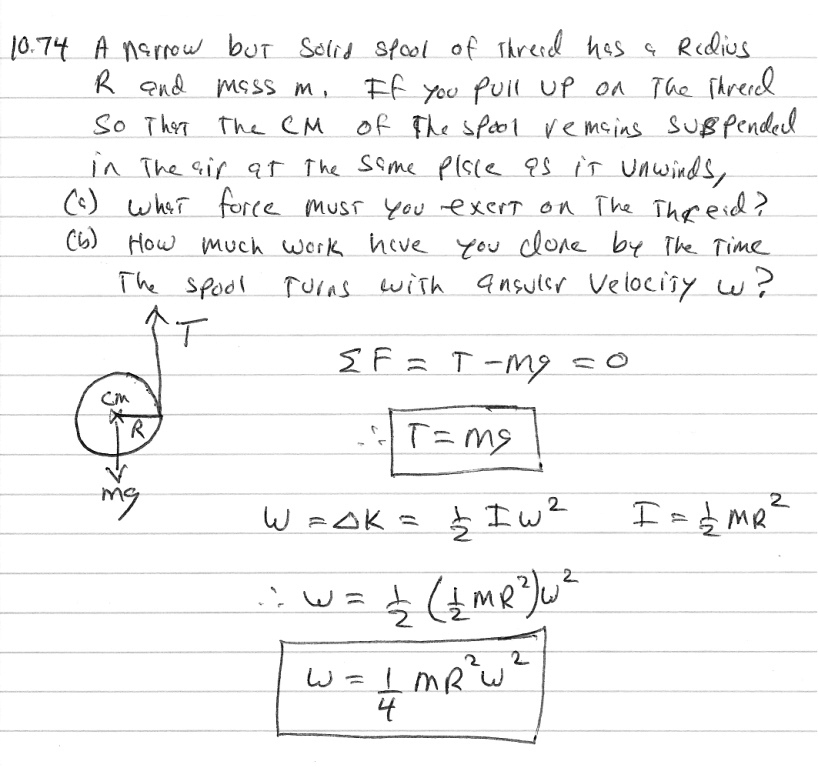 10.74 A narrow but solid spool of thread has a Radius
R and mass m. If you pull up on the thread
so that the CM of the spool remains suspended
in the air at the same place as it unwinds,
(a) what force must you exert on the thread?
(b) How much work have you done by the time
the spool turns with angular velocity ω?
T
CM
R
mg
ΣF = T - mg = 0
∴ T = mg
W = ΔK = 1/2 Iω² I = 1/2 MR²
∴ W = 1/2 (1/2 MR²)ω²
W = 1/4 MR²ω²